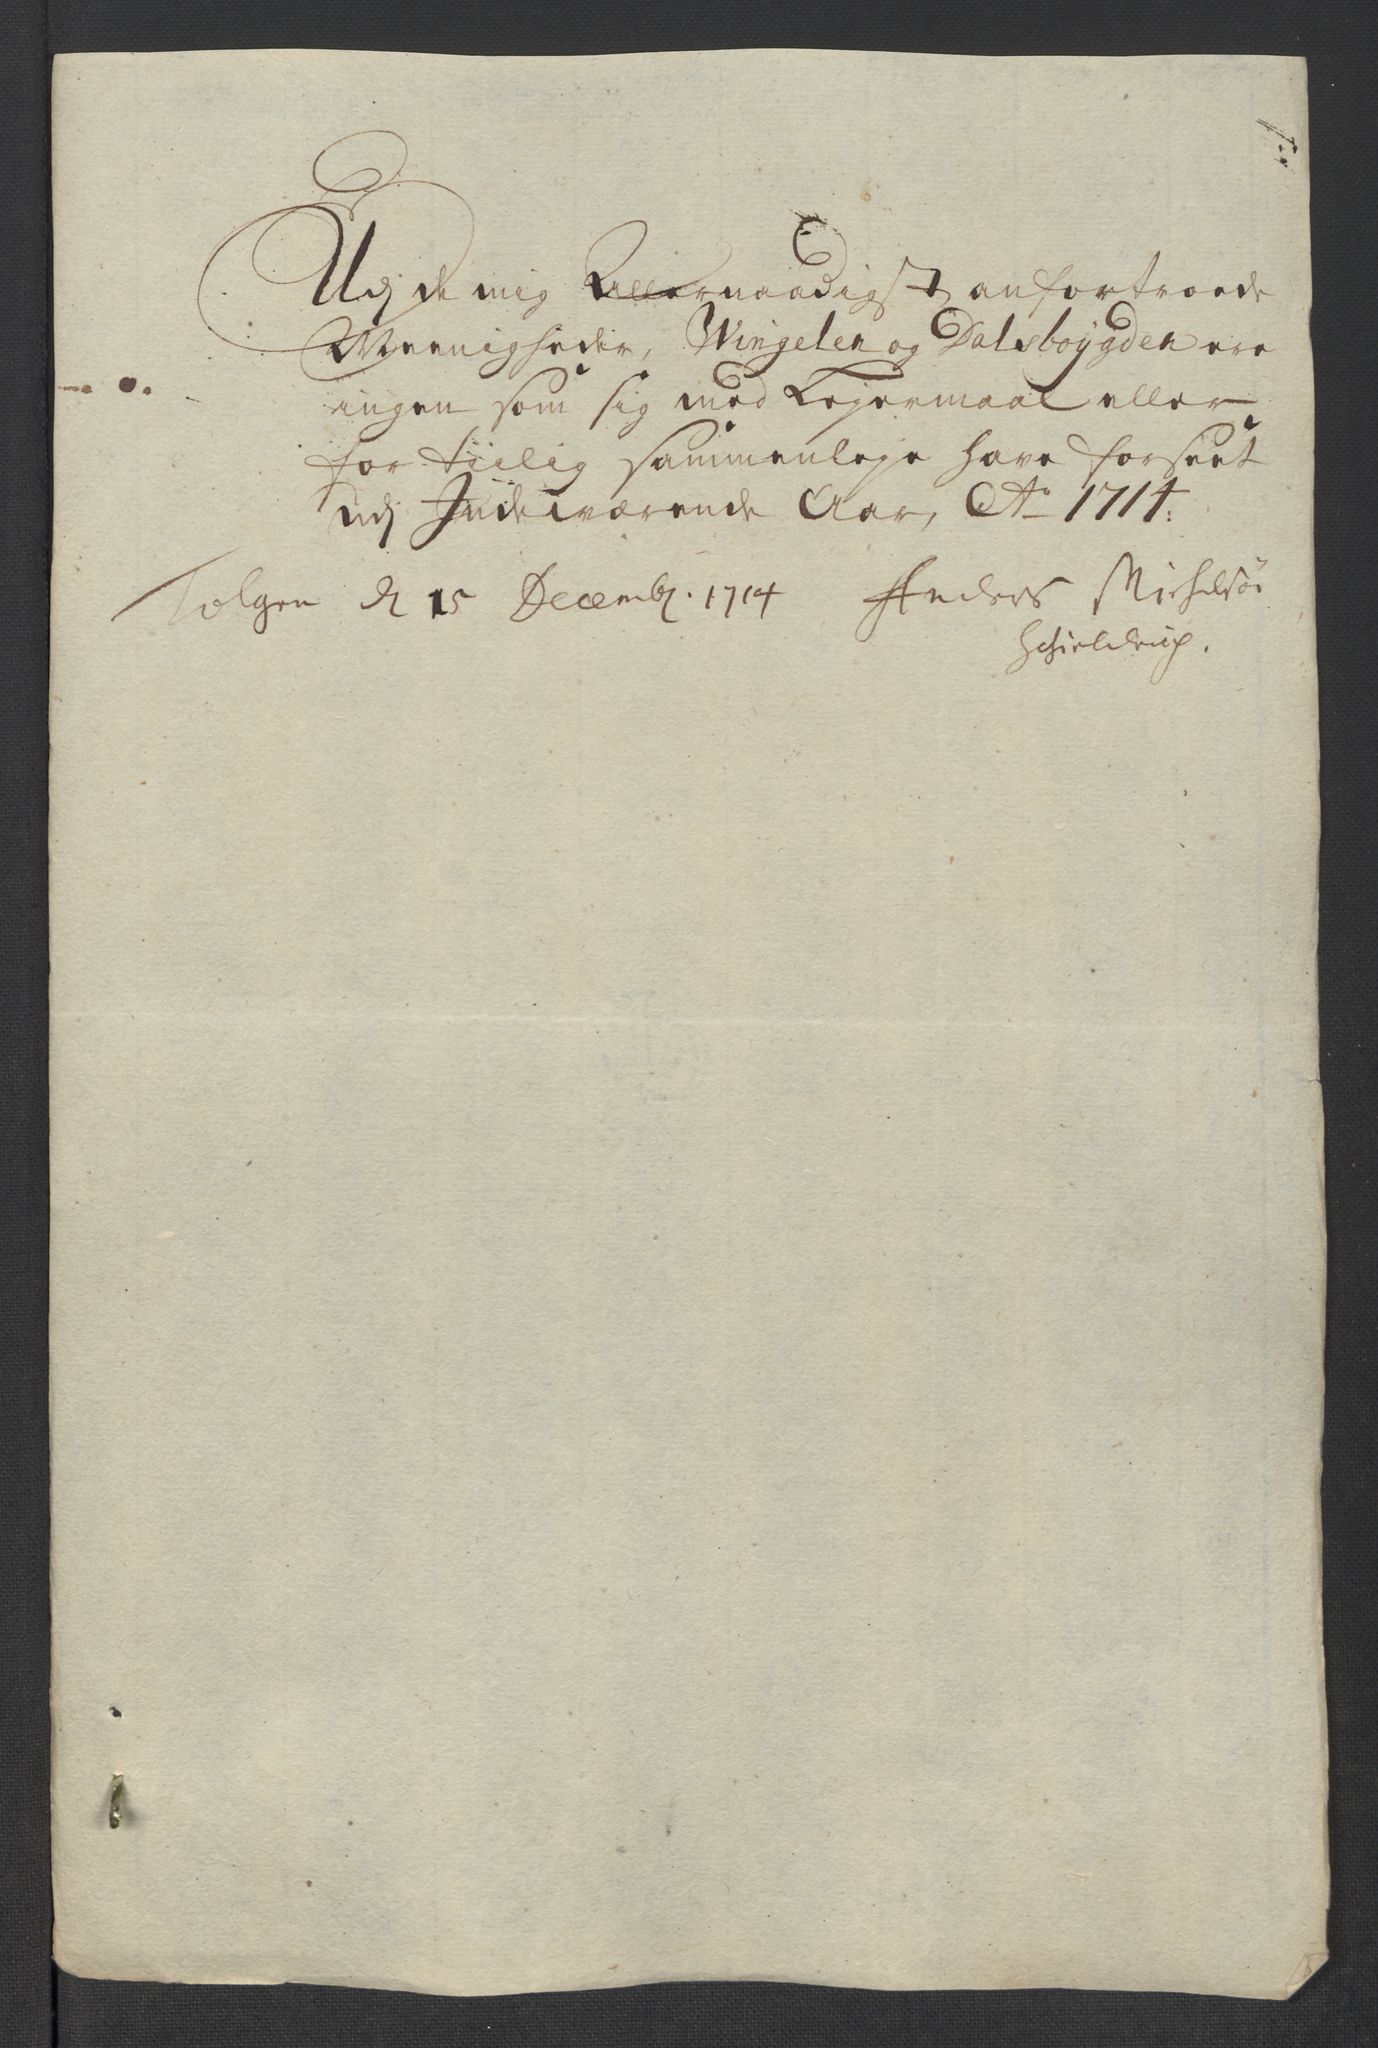 Udj de mig Allernaadigst anfortroede
Meenigheder, Wingelen og Dalsboÿgden ere
ingen som sig med Lejermaal eller
for tiilig sammenleje have forseet
udj Indeværende Aar, Ao 1714.
Tolgen d 15 Decemb. 1714 Anders Michelsøn
Schieldrup.